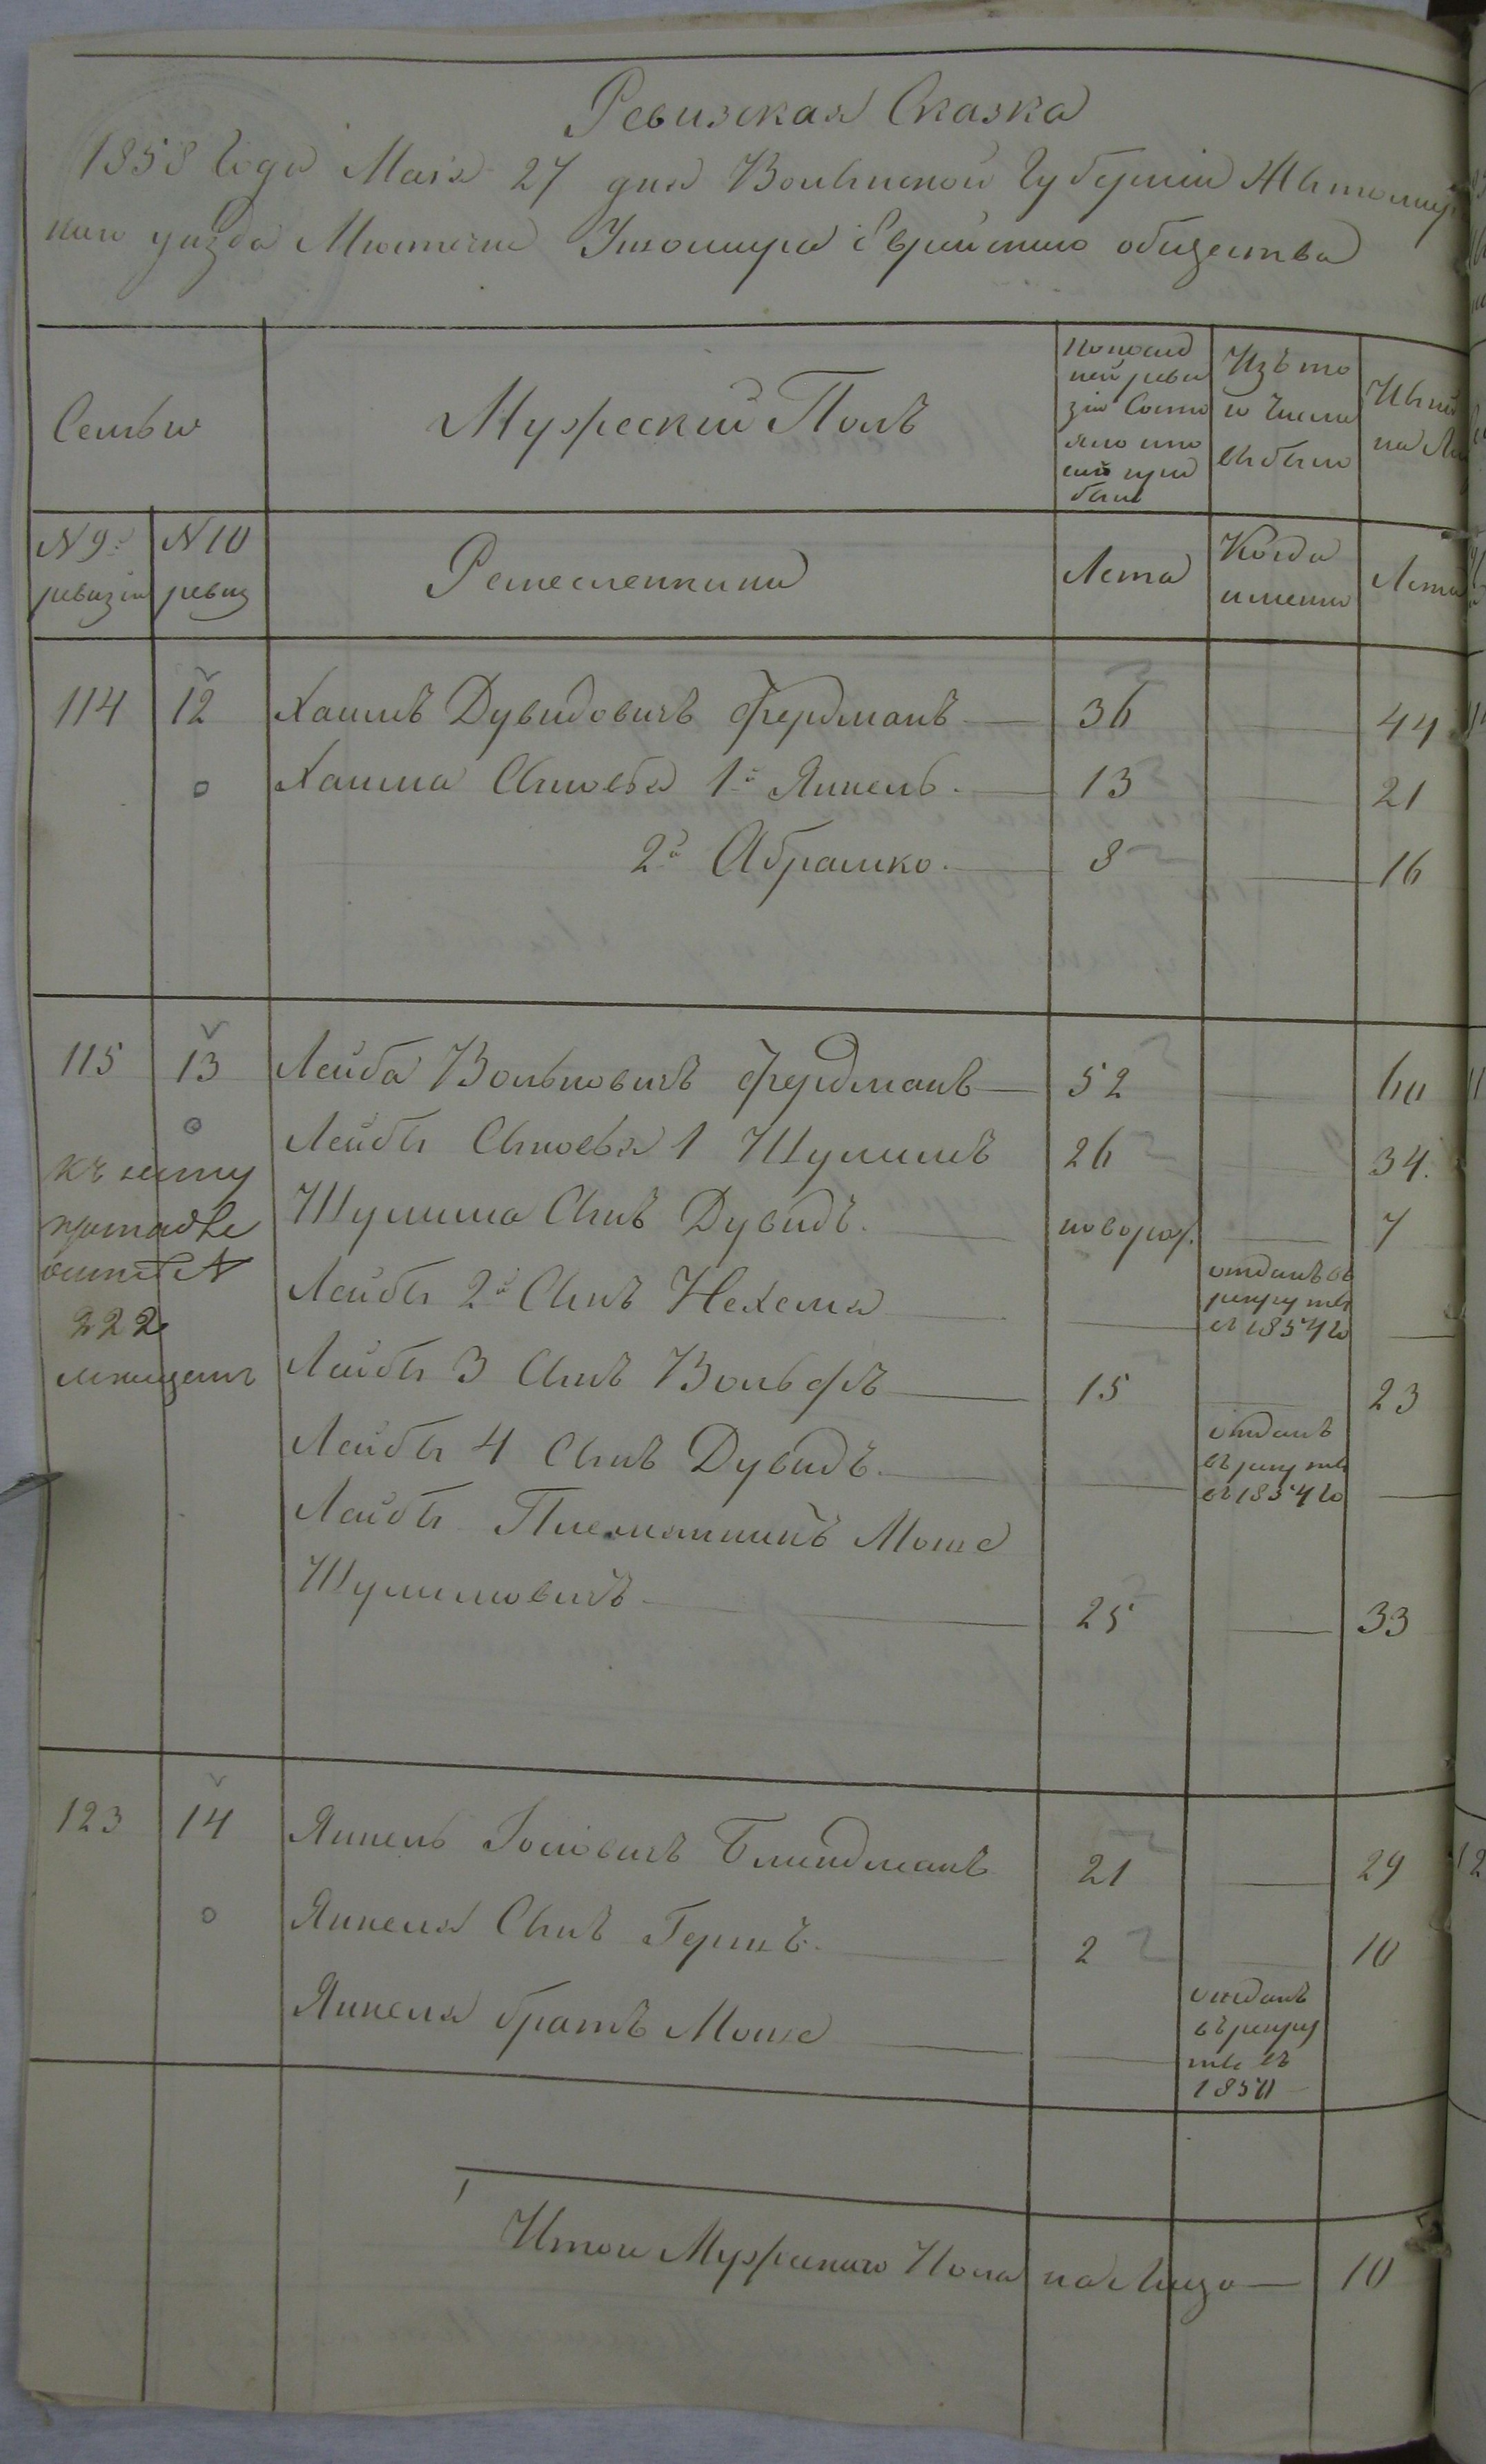 Ревизская Сказка
1858 Года Маія 27 дня Волынской Губерніи Житомир
скаго уезда Мистечка Ушомира Еврейскаго общества
Семьи
Мужеский Полъ
По послед
ней реви
зіи Состо
яло и по
сле при
было
Изъ то
го числа
выбыло
Ныне
на Ли
N 9й
ревизіи
N 10
ревиз
Ремесленники
Лета
Когда
именно
Лета
114 12 Хаимъ Дувидовичъ Фердманъ 36 44
Хаима Сыновья 1й Янкель 13 21
2й Абрашко 8 16
115 13 Лейба Вольковичъ Фердманъ 52 60
Лейбы Сыновья 1 Шулимъ 26 34
Шулима Сынъ Дувидъ новорож. 7
Лейбы 2й Сынъ Нехемя отданъ въ
рекруты
въ 1854 го
Лейбы 3 Сынъ Вольфъ 15 23
Лейбы 4 Сынъ Дувидъ отданъ
въ рекруты
въ 1854 го
Лейбы Племянникъ Мошко
Шулимовичъ 25 33
къ сему
семейст N
222
мещанъ
123 14 Янкель Іосіовичъ Блиндманъ 21 29
Янкеля Сынъ Гершъ 2 10
Янкеля братъ Мошко отданъ
въ рекру
ты въ
1850
Итого Мужескаго Пола на Лицо 10